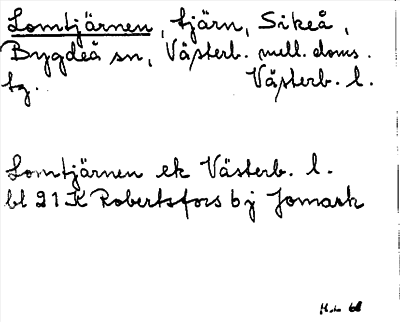 Lomtjärnen, tjärn, Sikeå,
Bygdeå sn, Västerb. mell. doms.
tg. Västerb. l.
Lomtjärnen ek Västerb. l.
bl 21 K Robertsfors 6 j Jomark